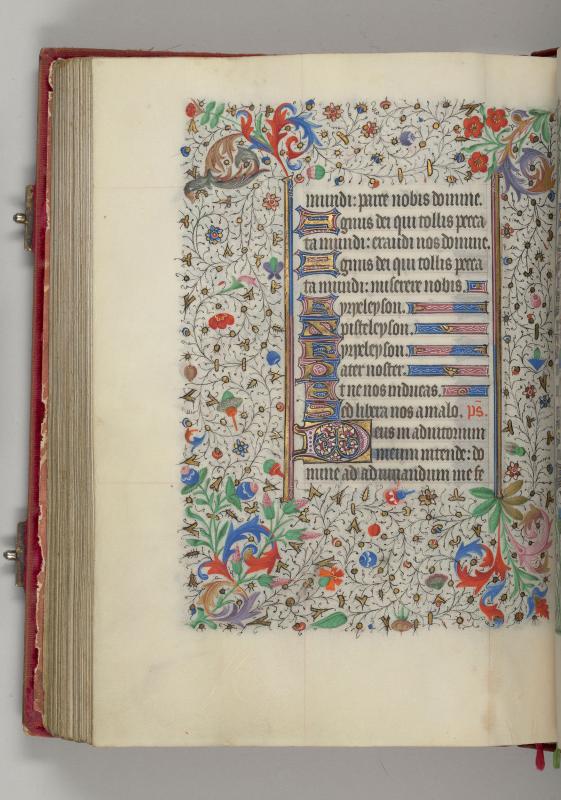 mundi: parce nobis domine.
Agnus dei qui tollis pecca
ta mundi: exaudi nos domine.
Agnus dei qui tollis pecca
ta mundi: miserere nobis.
Kyryeleyson.
Xpisteleyson.
Kyryeleyson.
Pater noster.
Et ne nos inducas.
Sed libera nos a malo. ps̄.
Deus in adiutorium
meum intende: do
mine ad adiuuandum me fe